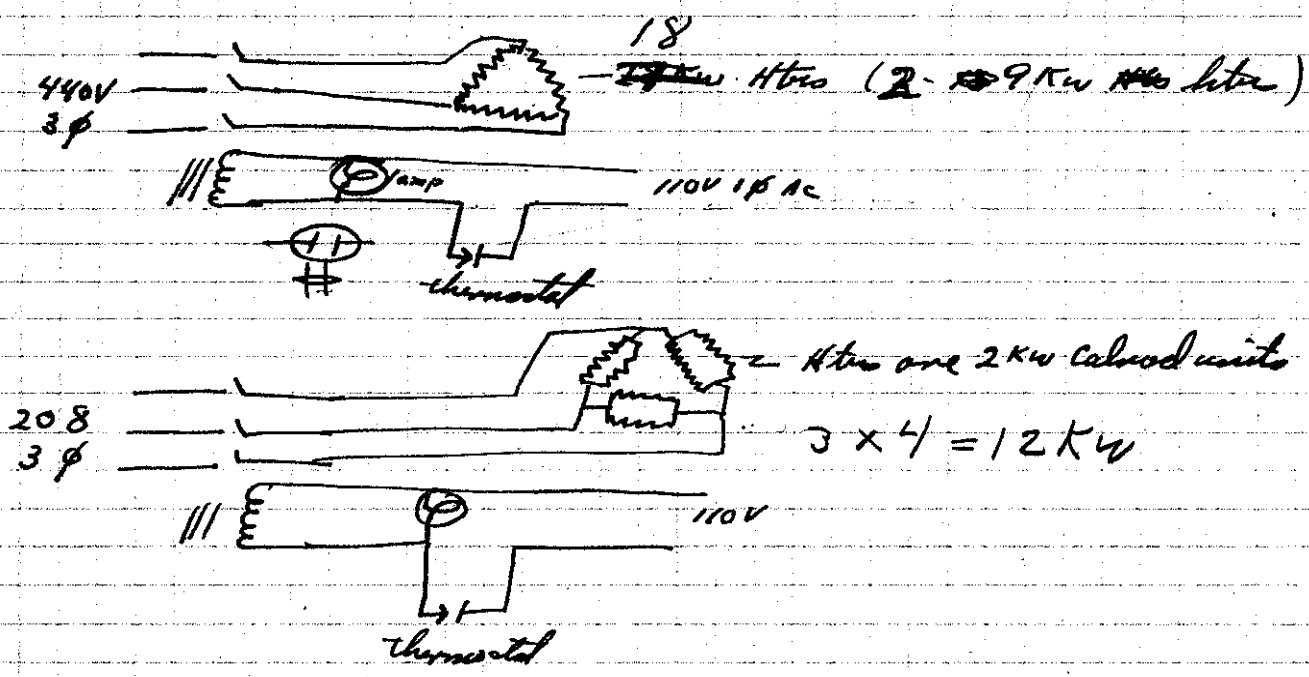 18
440V
3φ
Htrs (2 - 9 Kw htrs)
lamp
110V 1φ AC
thermostat
Htrs are 2 Kw Calrod units
208
3φ
3 x 4 = 12 Kw
110V
thermostat